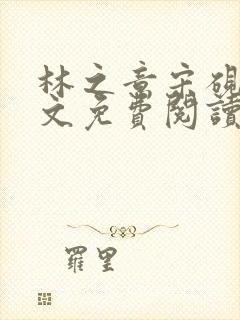 林之章宋硯
文免費閱讀
羅里